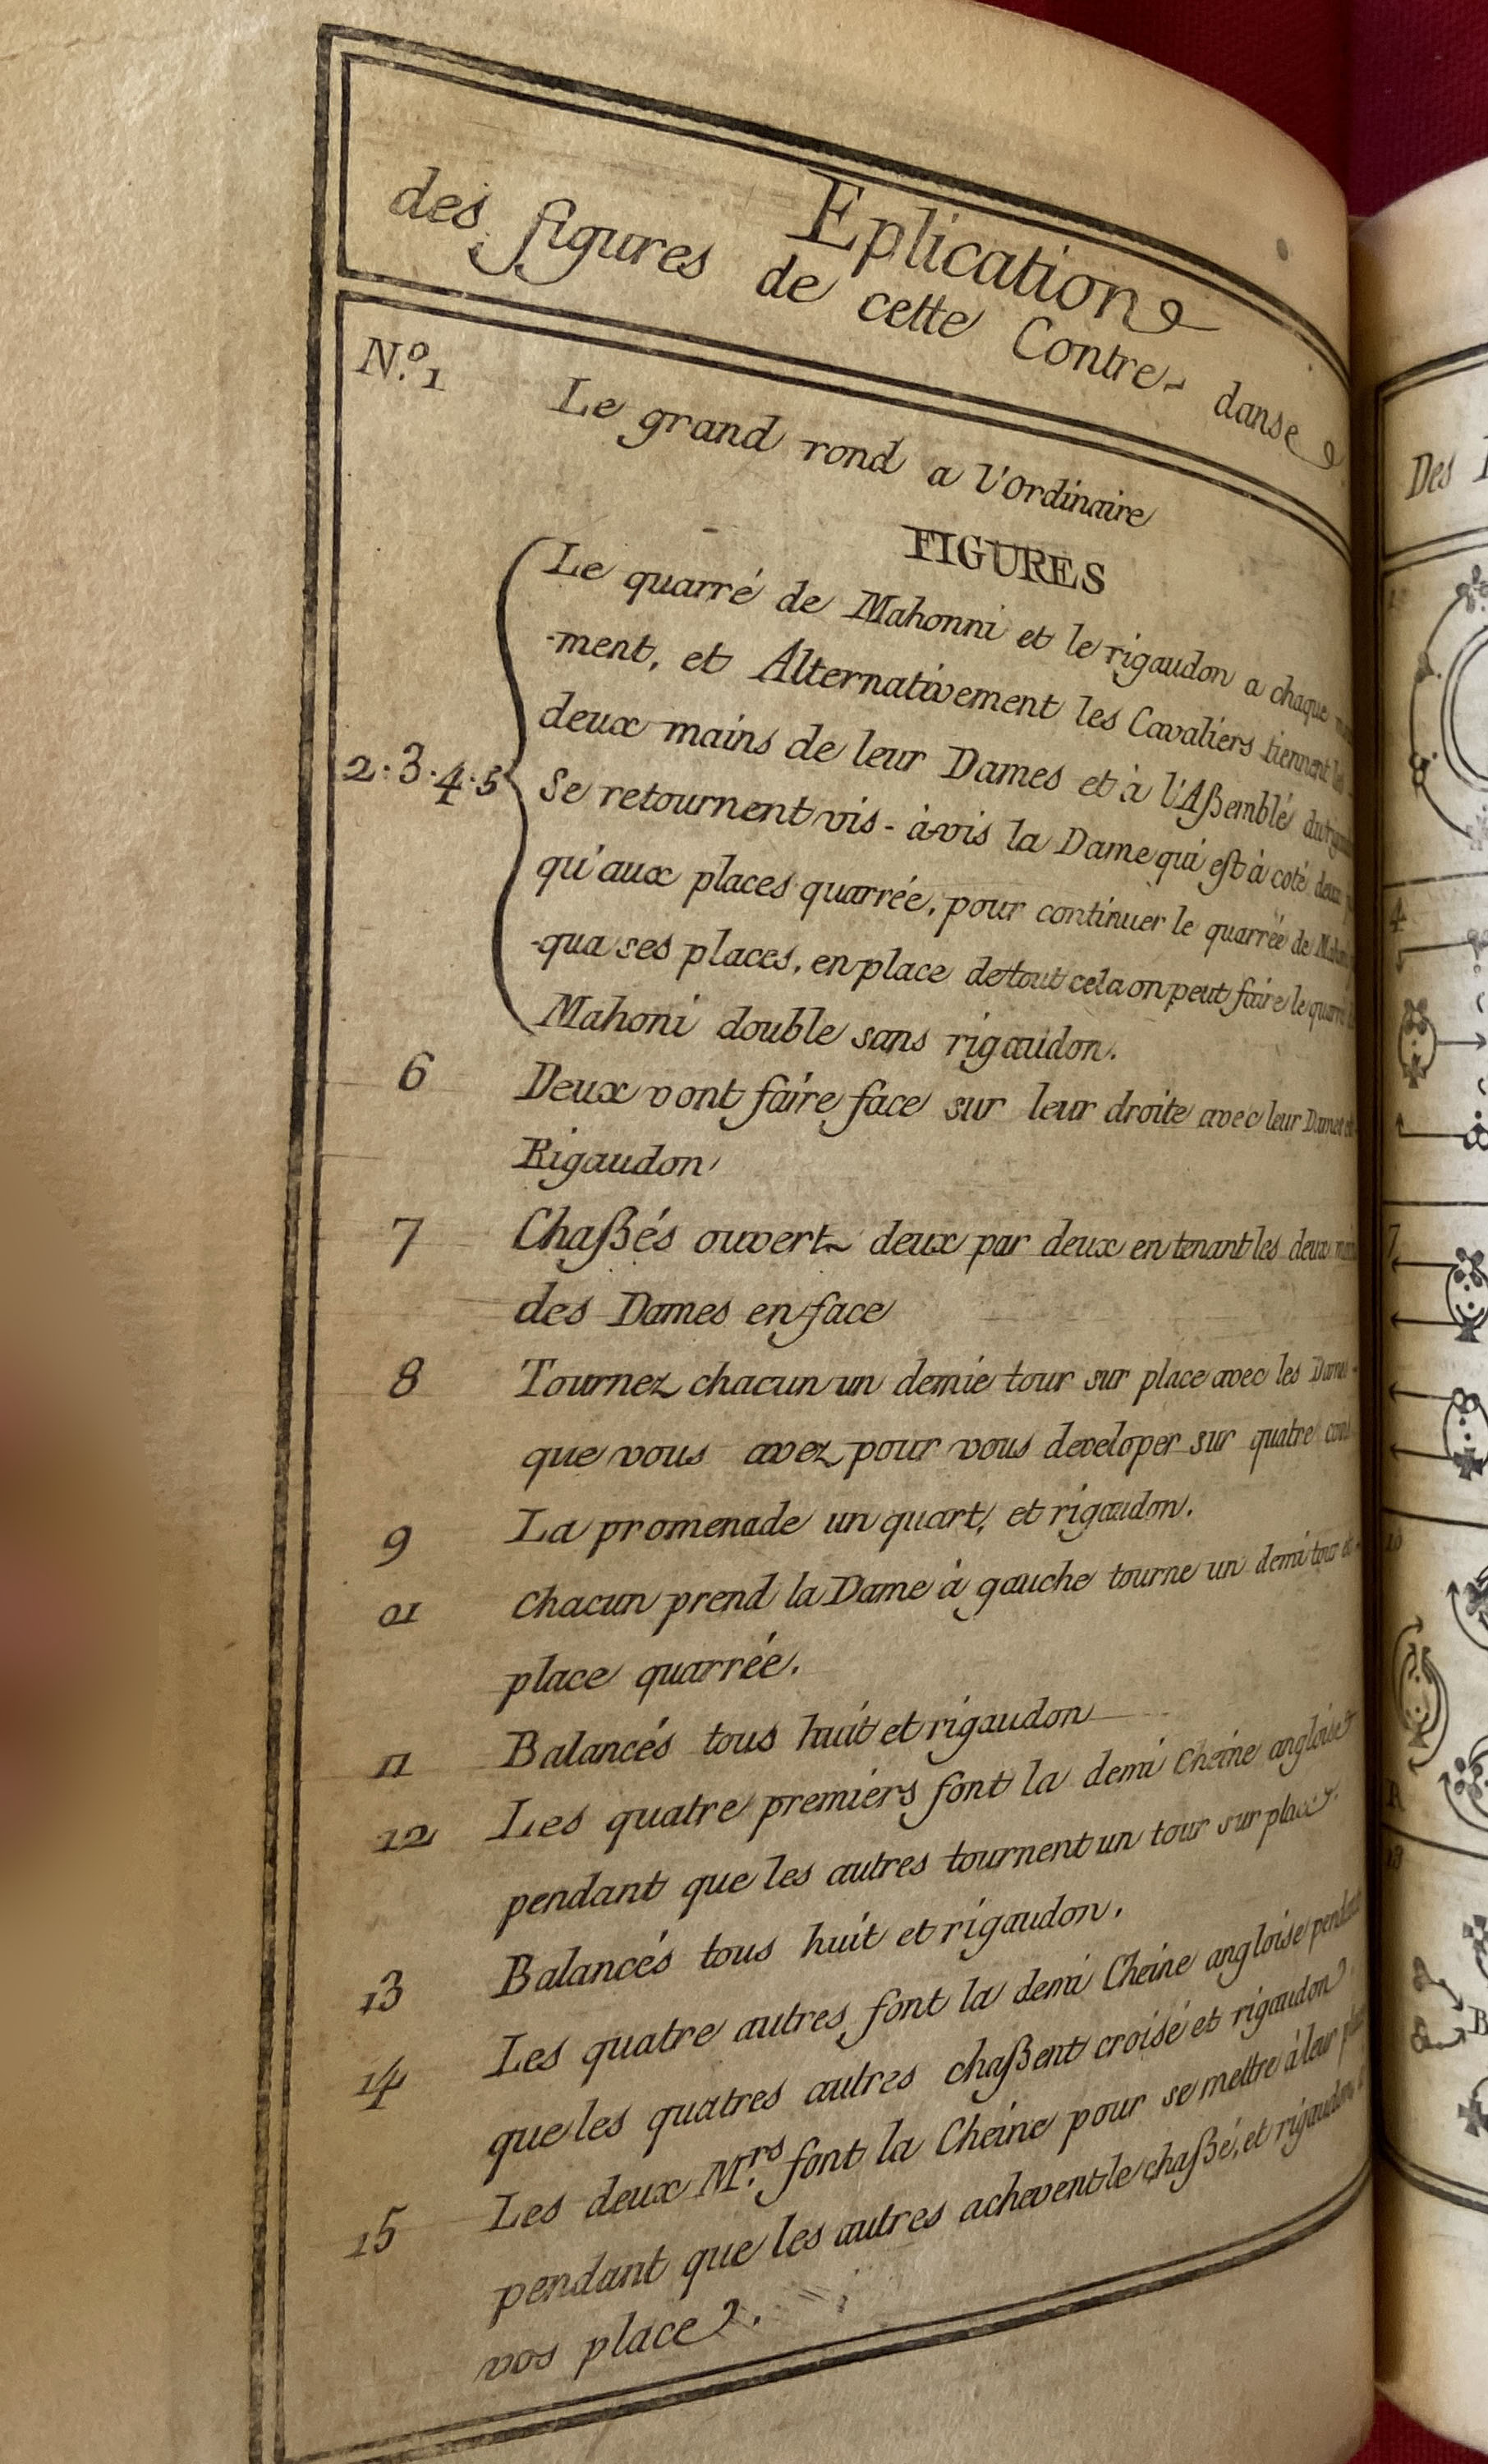 Eplication
des figures de cette Contre- danse
N.º 1 Le grand rond a l'Ordinaire
FIGURES
2.3.4.5 Le quarré de Mahonni et le rigaudon a chaque
-ment, et Alternativement les Cavaliers tiennent les
deux mains de leur Dames et à l'Aßemblé du
se retournent vis-à-vis la Dame qui est à coté deux
qu'aux places quarrée, pour continuer le quarrée de
-qua ses places, en place de tout cela on peut faire le quarré
Mahoni double sans rigaudon.
6 Deux vont faire face sur leur droite avec leur Dames et
Rigaudon
7 Chaßés ouvert deux par deux en tenant les deux
des Dames en face
8 Tournez chacun un demie tour sur place avec les Dames
que vous avez pour vous developer sur quatre
9 La promenade un quart, et rigaudon.
01 Chacun prend la Dame à gauche tourne un demi tour
place quarrée.
11 Balancés tous huit et rigaudon
12 Les quatre premiers font la demi Cheine angloise
pendant que les autres tournent un tour sur place.
13 Balancés tous huit et rigaudon.
14 Les quatre autres font la demi Cheine angloise pendant
que les quatres autres chaßent croisé et rigaudon
15 Les deux M.rs font la Cheine pour se mettre à leur
pendant que les autres achevent le chaßé, et rigaudon
vos place.
Des
4
7
10
13
B